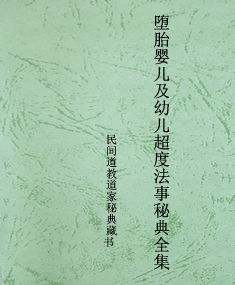 堕胎婴儿及幼儿超度法事秘典全集
民间道教道家秘典藏书